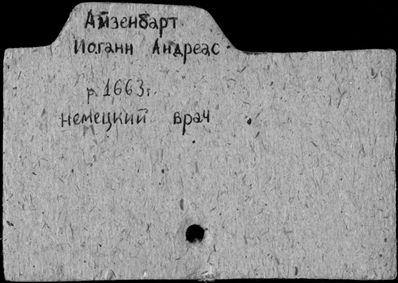 Айзенбарт
Иоганн Андреас
р. 1663г.
немецкий врач